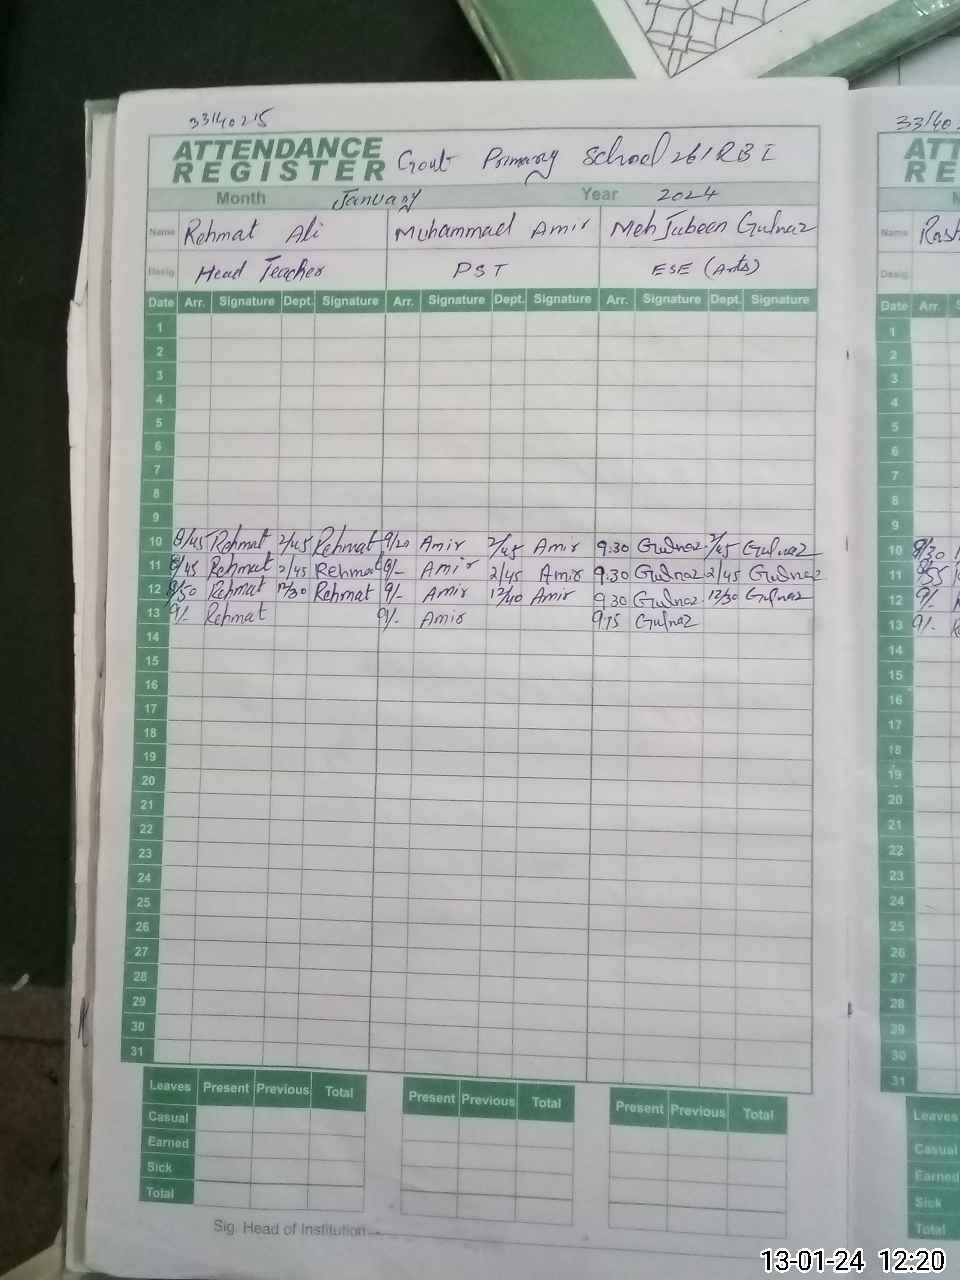 33140215
ATTENDANCE REGISTER Govt Primary School 261 RB I
Month January Year 2024
Name Rehmat Ali Muhammad Amir Mehjubeen Gulnaz
Desig. Head Teacher PST ESE (Arts)
Date Arr. Signature Dept. Signature Arr. Signature Dept. Signature Arr. Signature Dept. Signature
1
2
3
4
5
6
7
8
9
10 8/45 Rehmat 2/45 Rehmat 9/20 Amir 2/45 Amir 9.30 Gulnaz 2/45 Gulnaz
11 8/45 Rehmat 2/45 Rehmat 9/- Amir 2/45 Amir 9.30 Gulnaz 2/45 Gulnaz
12 8/50 Rehmat 12/30 Rehmat 9/- Amir 12/40 Amir 9.30 Gulnaz 12/30 Gulnaz
13 9/- Rehmat 9/- Amir 9.15 Gulnaz
14
15
16
17
18
19
20
21
22
23
24
25
26
27
28
29
30
31
Leaves Present Previous Total Present Previous Total Present Previous Total
Casual
Earned
Sick
Total
Sig. Head of Institution
Name
Desig.
Date Arr.
1
2
3
4
5
6
7
8
9
10 8/30
11 8/55
12 9/-
13 9/-
14
15
16
17
18
19
20
21
22
23
24
25
26
27
28
29
30
31
Leaves
Casual
Earned
Sick
Total
13-01-24 12:20